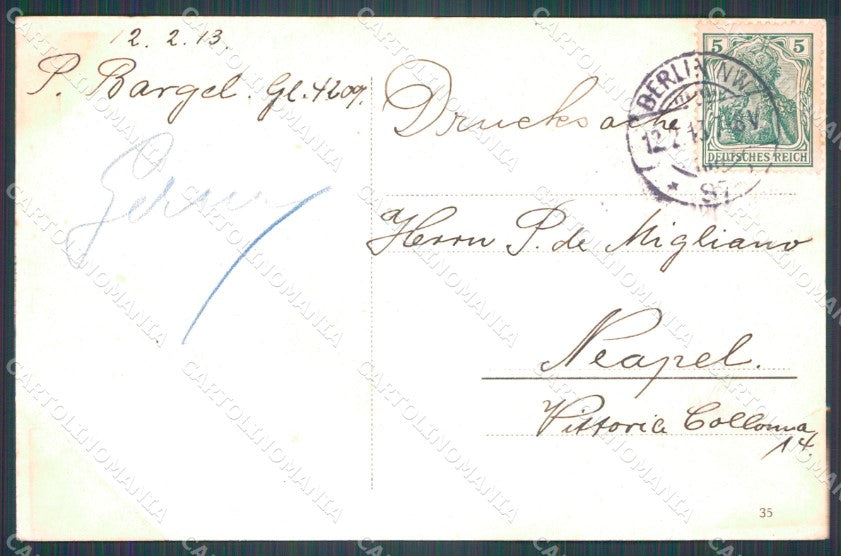 12. 2. 13.
P. Bargel. Gl. 4209.
Drucksache
5 5
DEUTSCHES REICH
BERLIN NW
12.2.13.7-8V.
* 87
Herrn P. de Migliano
Neapel.
Vittoria Collonna
14.
35
CARTOLINOMANIA